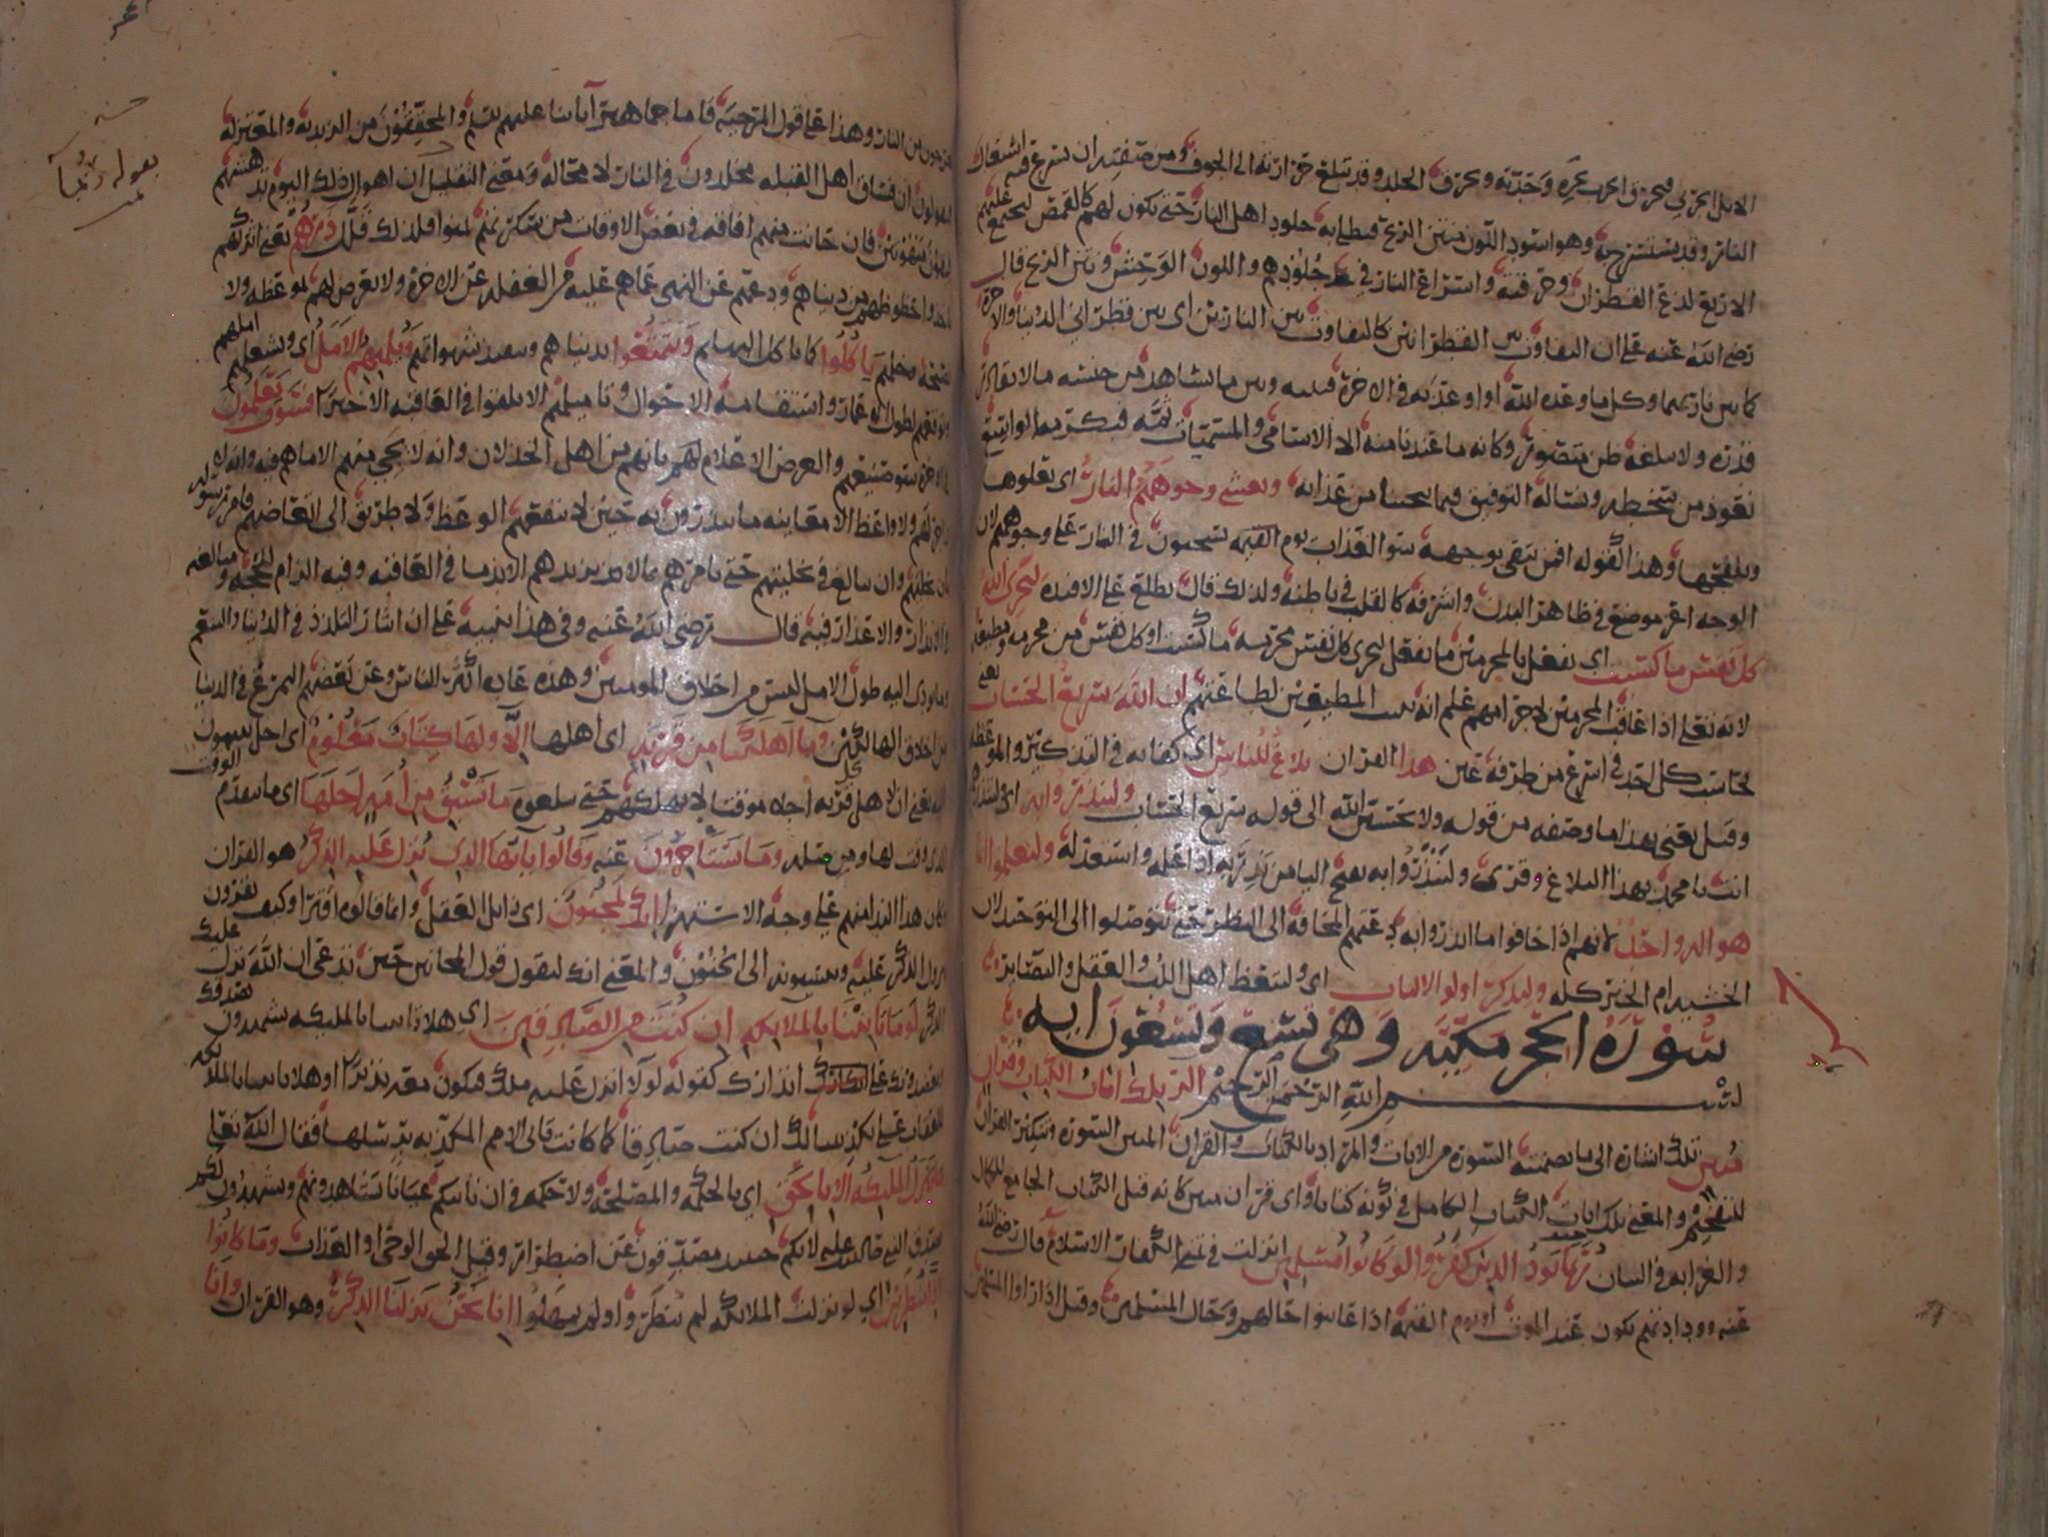 الابل الجربى فيحرق الجرب بحره وحدته ويحرق الجلد وقد تبلغ حرارته الى الجوف ومن صفته ان تسرع فيه اشتعال
النار وقد يستسرج به وهو اسود اللون منتن الريح فيطلى به جلود اهل النار حتى يكون لهم كالقمص ليجتمع عليهم
الاربع لذع القطران وحرقته واسراع النار في جلودهم واللون الوحش ونتن الريح قال
رضي الله عنه على ان التفاوت بين القطرانين كالتفاوت بين النارين اى بين قطران الدنيا والاخرة
كما بين ناريهما وكل ما وعده الله او اوعد به في الاخرة فبينه وبين ما نشاهد من جنسه ما لا يقادر
قدره ولا يبلغه ظن متصور وكانه ما عندنا منه الا الاسامي والمسميات ثمه فبكرمه الواسع
نعوذ من سخطه ونساله التوفيق فيما ينجينا من عذابه وتغشى وجوههم النار اى تعلوها
وتلفحها وهذا كقوله افمن يتقى بوجهه سوء العذاب يوم القيمه يسحبون في النار على وجوههم لان
الوجه اعز موضع في ظاهر البدن واشرفه كالقلب في باطنه ولذلك قال تطلع على الافئدة ليجزى الله
كل نفس ما كسبت اى يفعل بالمجرمين ما يفعل ليجزى كل نفس مجرمه ما كسبت او كل نفس من مجرمه ومطيعه
لانه تعلى اذا عاقب المجرمين لاجرامهم علم انه يثيب المطيعين لطاعتهم ان الله سريع الحساب يعنى
يحاسب كل احد في اسرع من طرفة عين هذا القران بلاغ للناس اى كفايه في التذكير والموعظه
وقيل يعنى بهذا ما وصفه من قوله ولا تحسبن الله الى قوله سريع الحساب ولينذروا به اى ولتنذر
انت يا محمد بهذا البلاغ وقرئ ولينذروا به بفتح اليا من نذر به اذا علمه واستعد له وليعلموا انما
هو اله واحد لانهم اذا خافوا ما انذروا به دعتهم المخافة الى النظر حتى يتوصلوا الى التوحيد لان
الخشيه ام الخير كله وليذكر اولوا الالباب اى وليتعظ اهل اللب والعقل والبصاير
سورة الحجر مكيه وهى تسع وتسعون ايه
بسم الله الرحمن الرحيم الر تلك ايات الكتاب وقران
مبين تلك اشارة الى ما تضمنته السورة من الايات والمراد بالكتاب والقران المبين السورة وتنكير القران
للتفخيم والمعنى تلك ايات الكتاب الكامل في كونه كتابا واى قران مبين كانه قيل الكتاب الجامع للكمال
والغرابه في البيان ربما يود الذين كفروا لو كانوا مسلمين انزلت في تمنى الكفار الاسلام قال رضي الله
عنه وودادتهم تكون عند الموت او يوم القيمه اذا عاينوا حالهم وحال المسلمين وقيل اذا راوا المسلمين
يخرجون من النار وهذا على قول المرجيه فاما جماهير ابائنا عليهم السلم والمحققون من الزيديه والمعتزله
فيقولون ان فساق اهل القبله مخلدون في النار لا محاله ومعنى التقليل ان اهوال ذلك اليوم تدهشهم
فيبقون مبهوتين فان حانت منهم افاقه في بعض الاوقات من سكرتهم تمنوا فلذلك قلل ذرهم يعنى اتركهم
ياخذوا حظوظهم من دنياهم ودعهم عن النهى عما هم عليه من الغفله عن الاخرة ولا تعرض لهم لموعظه ولا
نصيحة وخلهم ياكلوا كما تاكل البهايم ويتمتعوا بدنياهم وتنفيذ شهواتهم ويلههم الامل اى ويشغلهم املهم
وتوقعهم لطول الاعمار واستقامة الاحوال وتاميلهم الا يلقوا في العاقبه الا خيرا فسوف يعلمون
في الاخرة سوء صنيعهم والغرض الاعلام لهم بانهم من اهل الخذلان وانه لا يجى منهم الا ما هم فيه وانه لا
زاجر لهم ولا واعظ الا معاينه ما ينذرون به حين لا ينفعهم الوعظ ولا طريق الى اتعاظهم فامر رسوله
بان يخليهم وان يبالغ في تخليتهم حتى يامرهم بما لا يزيدهم الا ندما في العاقبه وفيه الزام للحجه ومبالغه
في الانذار والاعذار فيه قال رضي الله عنه وفي هذا تنبيه على ان ايثار التلذذ في الدنيا والتنعم
وما يودى اليه طول الامل ليس من اخلاق المومنين وهذه عاده اكثر الناس وعن بعضهم التمرغ في الدنيا
من اخلاق الهالكين وما اهلكنا من قرية اى اهلها الا ولها كتاب معلوم اى اجل ينتهون
اليه يعنى ان لاهل كل قريه اجلا موقتا لا نهلكهم حتى يبلغوه ما تسبق من امة اجلها اى ما تتقدم الوقت
الذى وقت لها ومن صله وما يستاخرون عنه وقالوا يايها الذى نزل عليه الذكر هو القران
وكان هذا الندا منهم على وجه الاستهزا انك لمجنون اى زايل العقل وانما قالوه افترا وكيف يقرون
بنزول الذكر عليه وينسبونه الى الجنون والمعنى انك لتقول قول المجانين حين تدعى ان الله نزل عليك
الذكر لوما تاتينا بالملايكه ان كنت من الصادقين اى هلا تاتينا بالمليكه يشهدون بصدقك
ويعضدونك على انذارك كقوله لولا انزل عليه ملك فيكون معه نذيرا او هلا تاتينا بالمليكه
للعقاب على تكذيبنا لك ان كنت صادقا كما كانت تاتى الامم المكذبه برسلها فقال الله تعلى
ما ننزل المليكه الا بالحق اى بالحكمه والمصلحة ولا حكمه في ان تاتيكم عيانا تشاهدونهم ويشهدون لكم
بصدق النبى صلى الله عليه لانكم حينئذ مصدقون عن اضطرار وقيل الحق الوحى او العذاب وما كانوا
اذا منظرين اى لو نزلت الملائكه لم ينظروا ولم يمهلوا انا نحن نزلنا الذكر وهو القران وانا